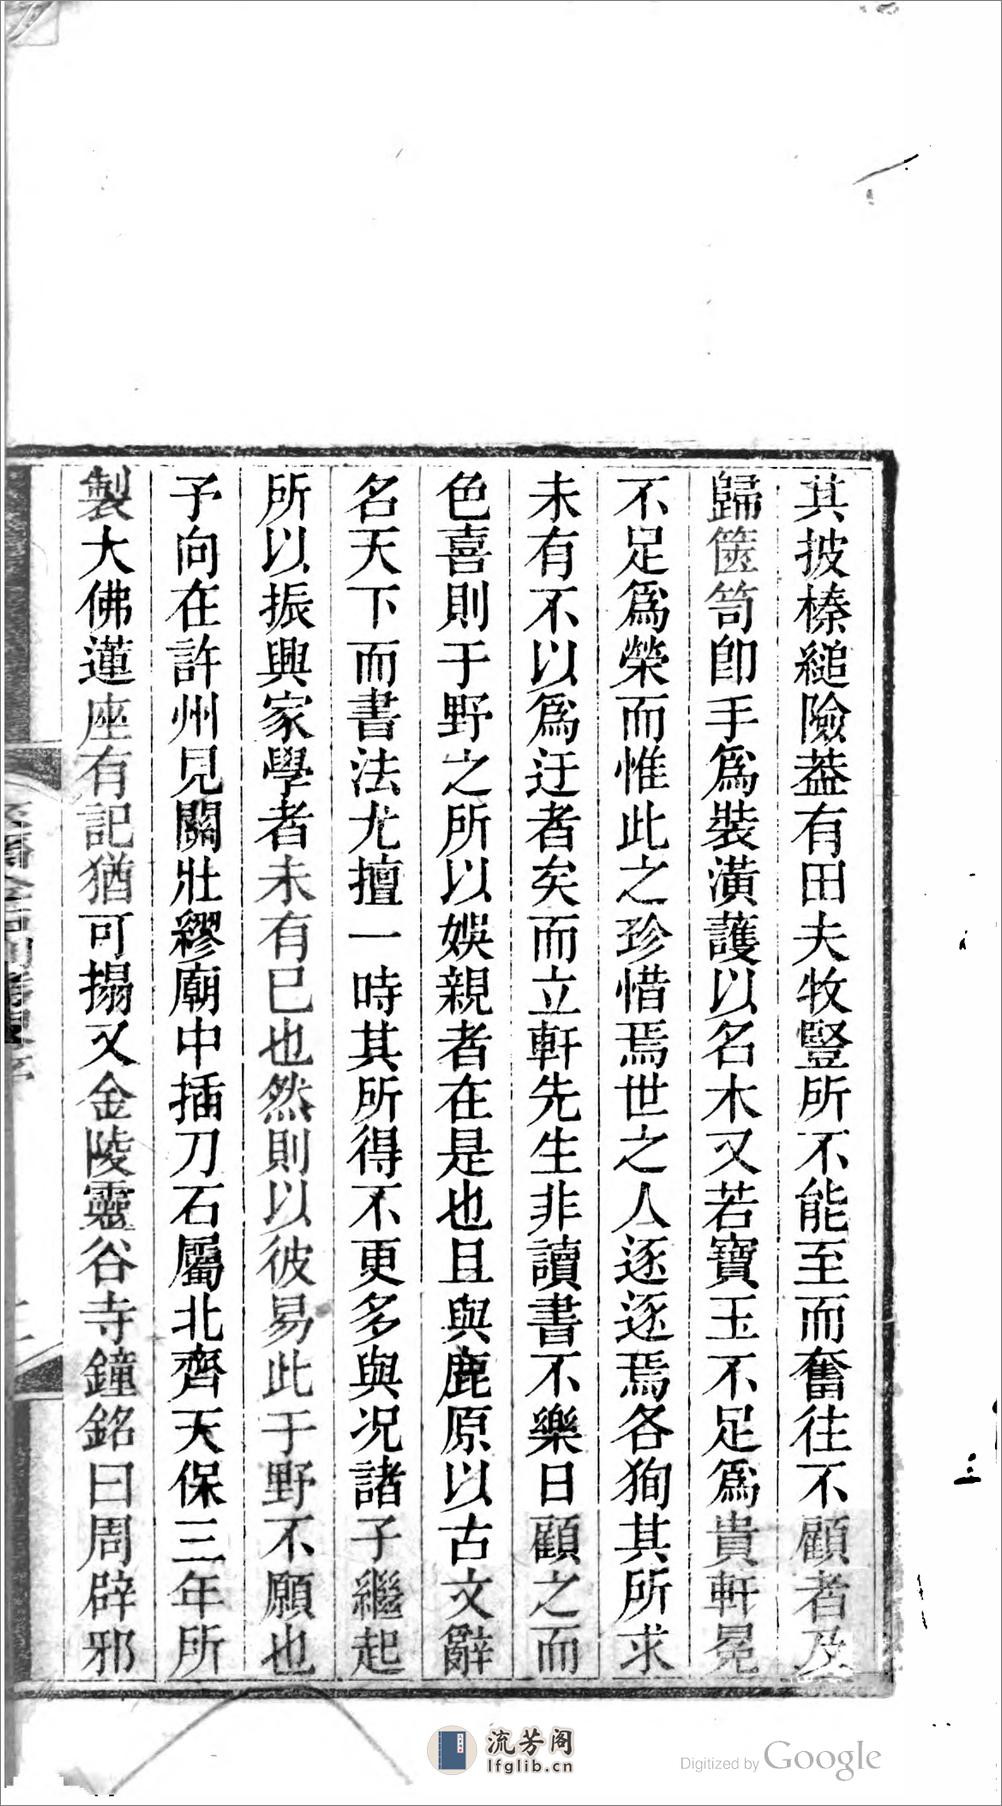 其披榛縋險葢有田夫牧豎所不能至而奮往不顧者及
歸篋笥卽手爲裝潢護以名木又若寶玉不足爲貴軒冕
不足爲榮而惟此之珍惜焉世之人逐逐焉各狥其所求
未有不以爲迂者矣而立軒先生非讀書不樂日顧之而
色喜則于野之所以娛親者在是也且與鹿原以古文辭
名天下而書法尤擅一時其所得不更多與况諸子繼起
所以振興家學者未有已也然則以彼易此于野不願也
予向在許州見關壯繆廟中插刀石屬北齊天保三年所
製大佛蓮座有記猶可搨又金陵靈谷寺鐘銘曰周辟邪
流芳阁
lfglib.cn
Digitized by Google